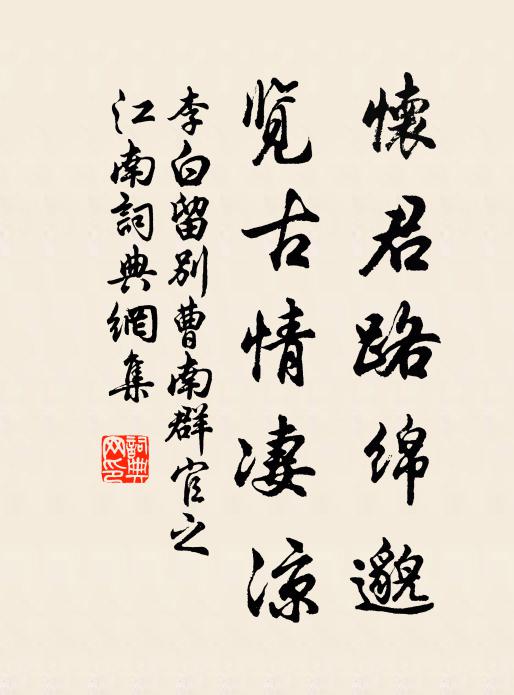 懷君路綿邈
覽古情凄涼
李白留別曹南群官之
江南詞典網集
詞典
网印